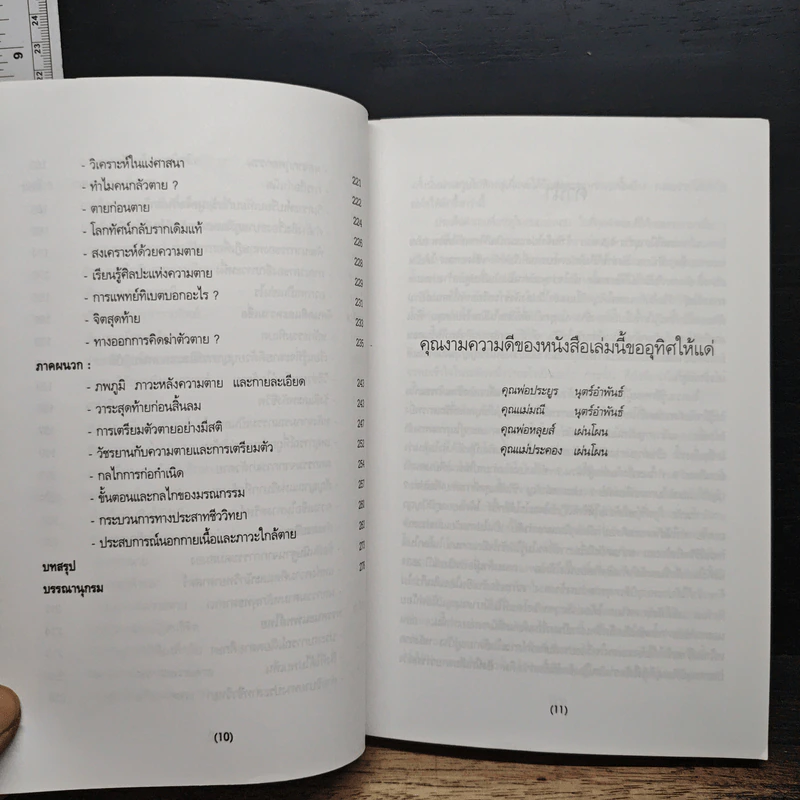 9
24
23
22
- วิเคราะห์ในแง่ศาสนา
- ทำไมคนกลัวตาย ? 221
- ตายก่อนตาย 222
- โลกทัศน์กลับรากเดิมแท้ 224
- สงเคราะห์ด้วยความตาย 226
- เรียนรู้ศิลปะแห่งความตาย 228
- การแพทย์ทิเบตบอกอะไร ? 229
- จิตสุดท้าย 231
- ทางออกการคิดฆ่าตัวตาย ? 233
ภาคผนวก : 235
- ภพภูมิ ภาวะหลังความตาย และกายละเอียด 243
- วาระสุดท้ายก่อนสิ้นลม 243
- การเตรียมตัวตายอย่างมีสติ 247
- วัชรยานกับความตายและการเตรียมตัว 253
- กลไกการก่อกำเนิด 254
- ขั้นตอนและกลไกของมรณกรรม 257
- กระบวนการทางประสาทชีววิทยา
- ประสบการณ์นอกกายเนื้อและภาวะใกล้ตาย
บทสรุป
บรรณานุกรม
(10)
คุณงามความดีของหนังสือเล่มนี้ขออุทิศให้แด่
คุณพ่อประยูร นุตร์อำพันธ์
คุณแม่มณี นุตร์อำพันธ์
คุณพ่อหลุยส์ เผ่นโผน
คุณแม่ประคอง เผ่นโผน
(11)